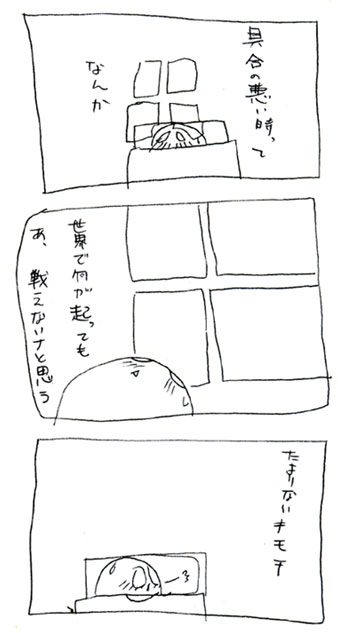 具合の悪い時って
なんか
世界で何が起っても
あ、戦えないナと思う
たよりないキモチ